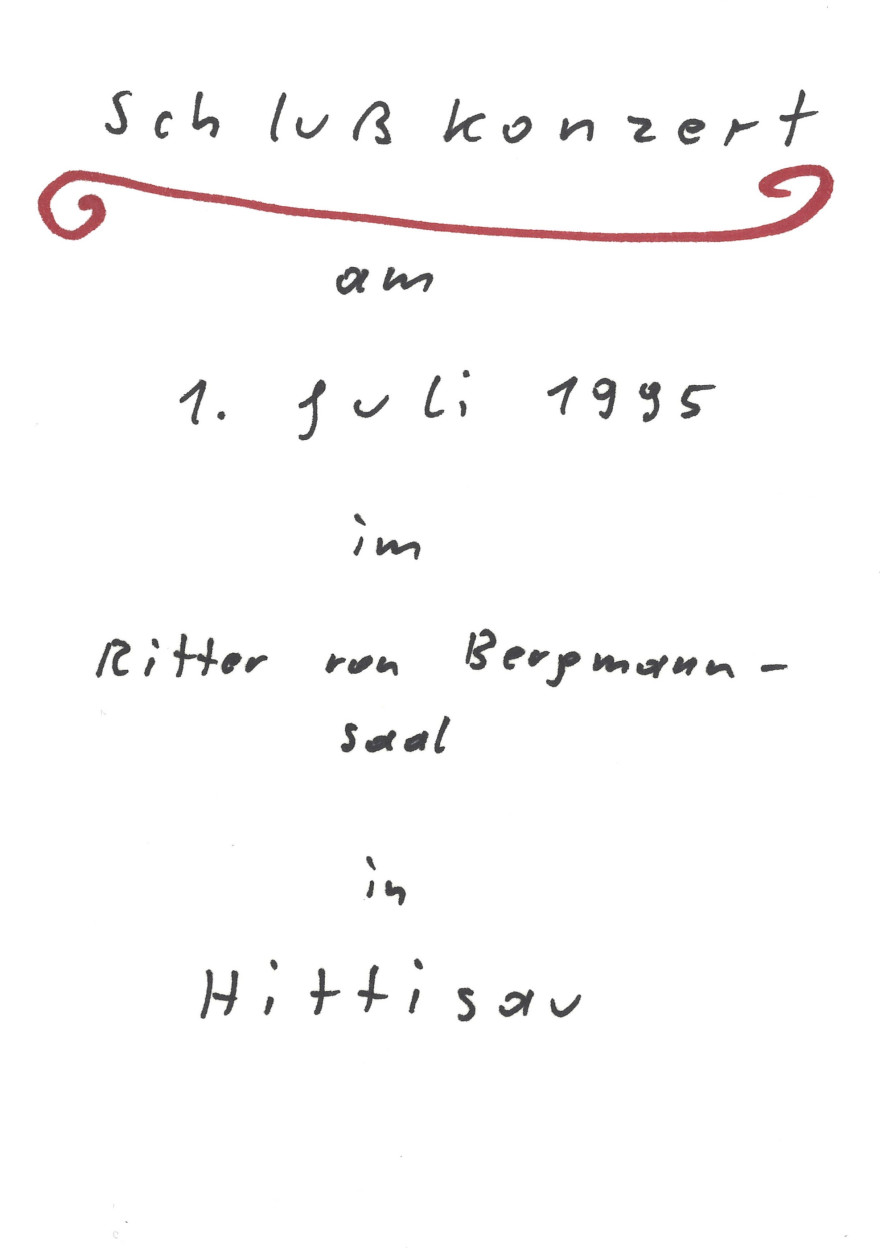 Schlußkonzert
am
1. Juli 1995
im
Ritter von Bergmann-
saal
in
Hittisau